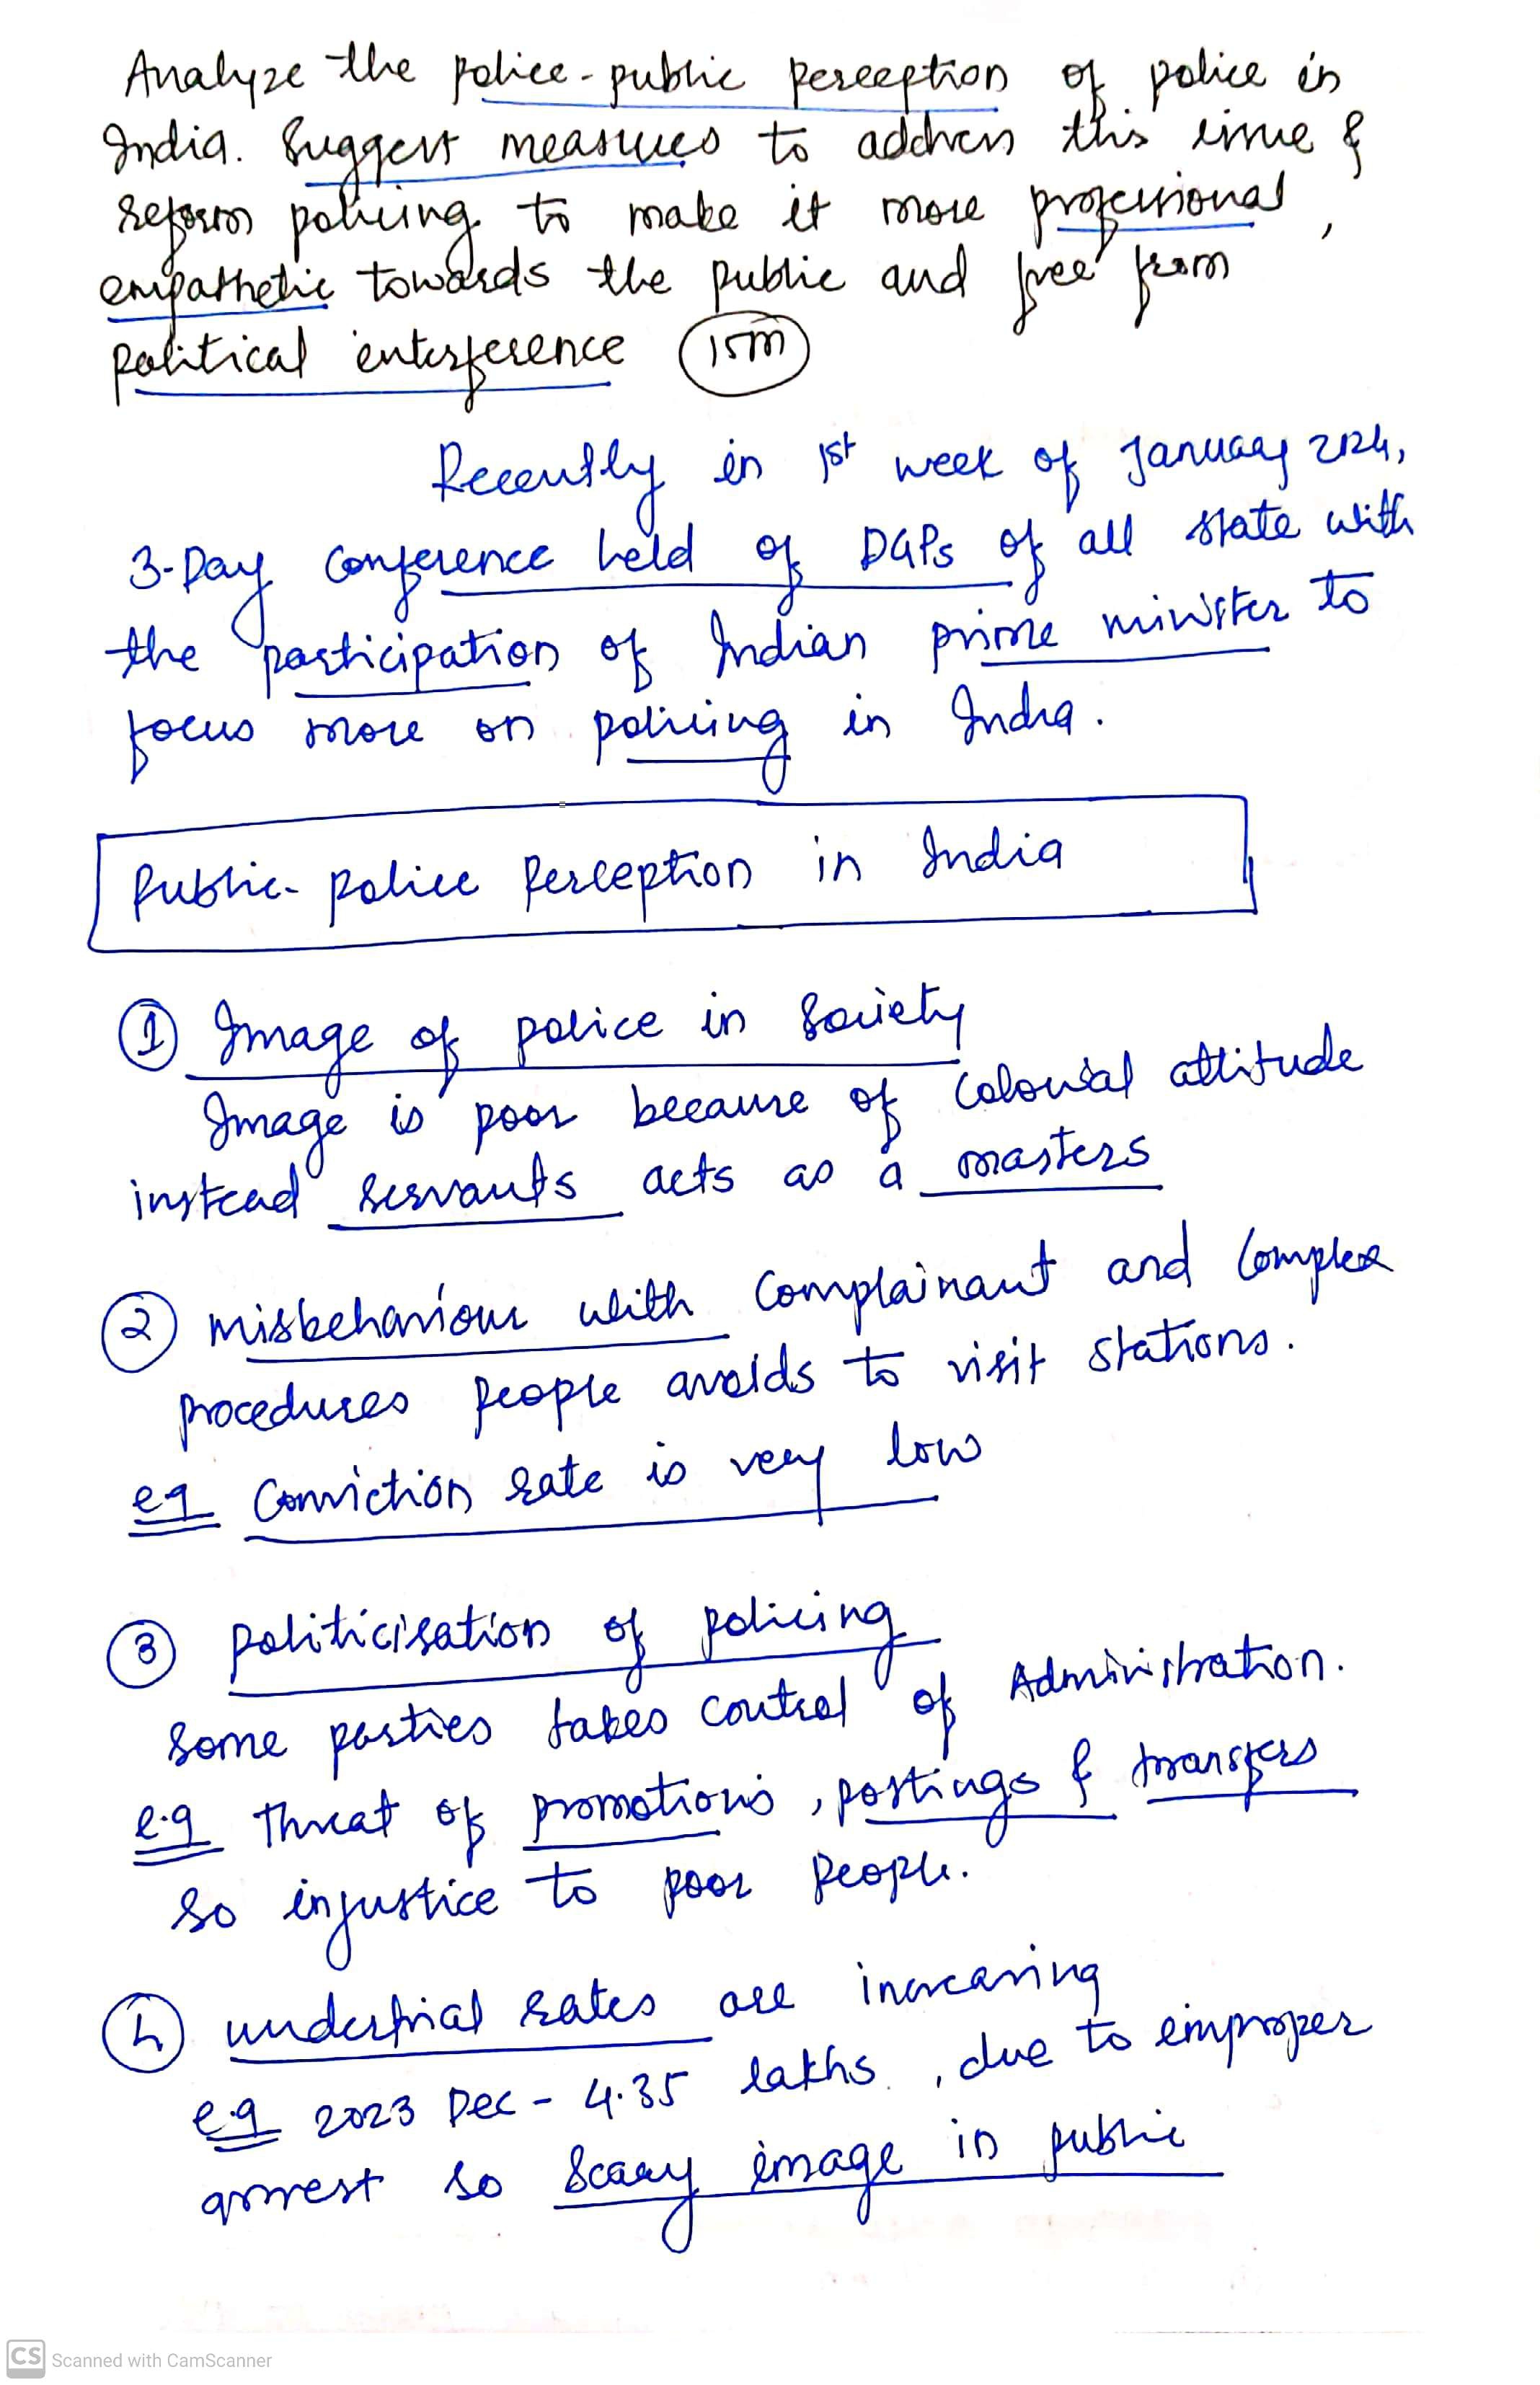 Analyze the police-public perception of police in
India. Suggest measures to address this issue &
reform policing to make it more professional,
empathetic towards the public and free from
political interference 15m
Recently in 1st week of January 2024,
3-Day conference held of DGPs of all state with
the participation of Indian prime minister to
focus more on policing in India.
Public-police Perception in India
① Image of police in society
Image is poor because of colonial attitude
instead servants acts as a masters
② misbehaviour with complainant and complex
procedures people avoids to visit stations.
eg conviction rate is very low
③ politicisation of policing
Some parties takes control of Administration.
e.g threat of promotions, postings & transfers
So injustice to poor people.
④ undertrial rates are increasing
e.g 2023 Dec - 4.35 lakhs, due to improper
arrest so scary image in public
CS Scanned with CamScanner